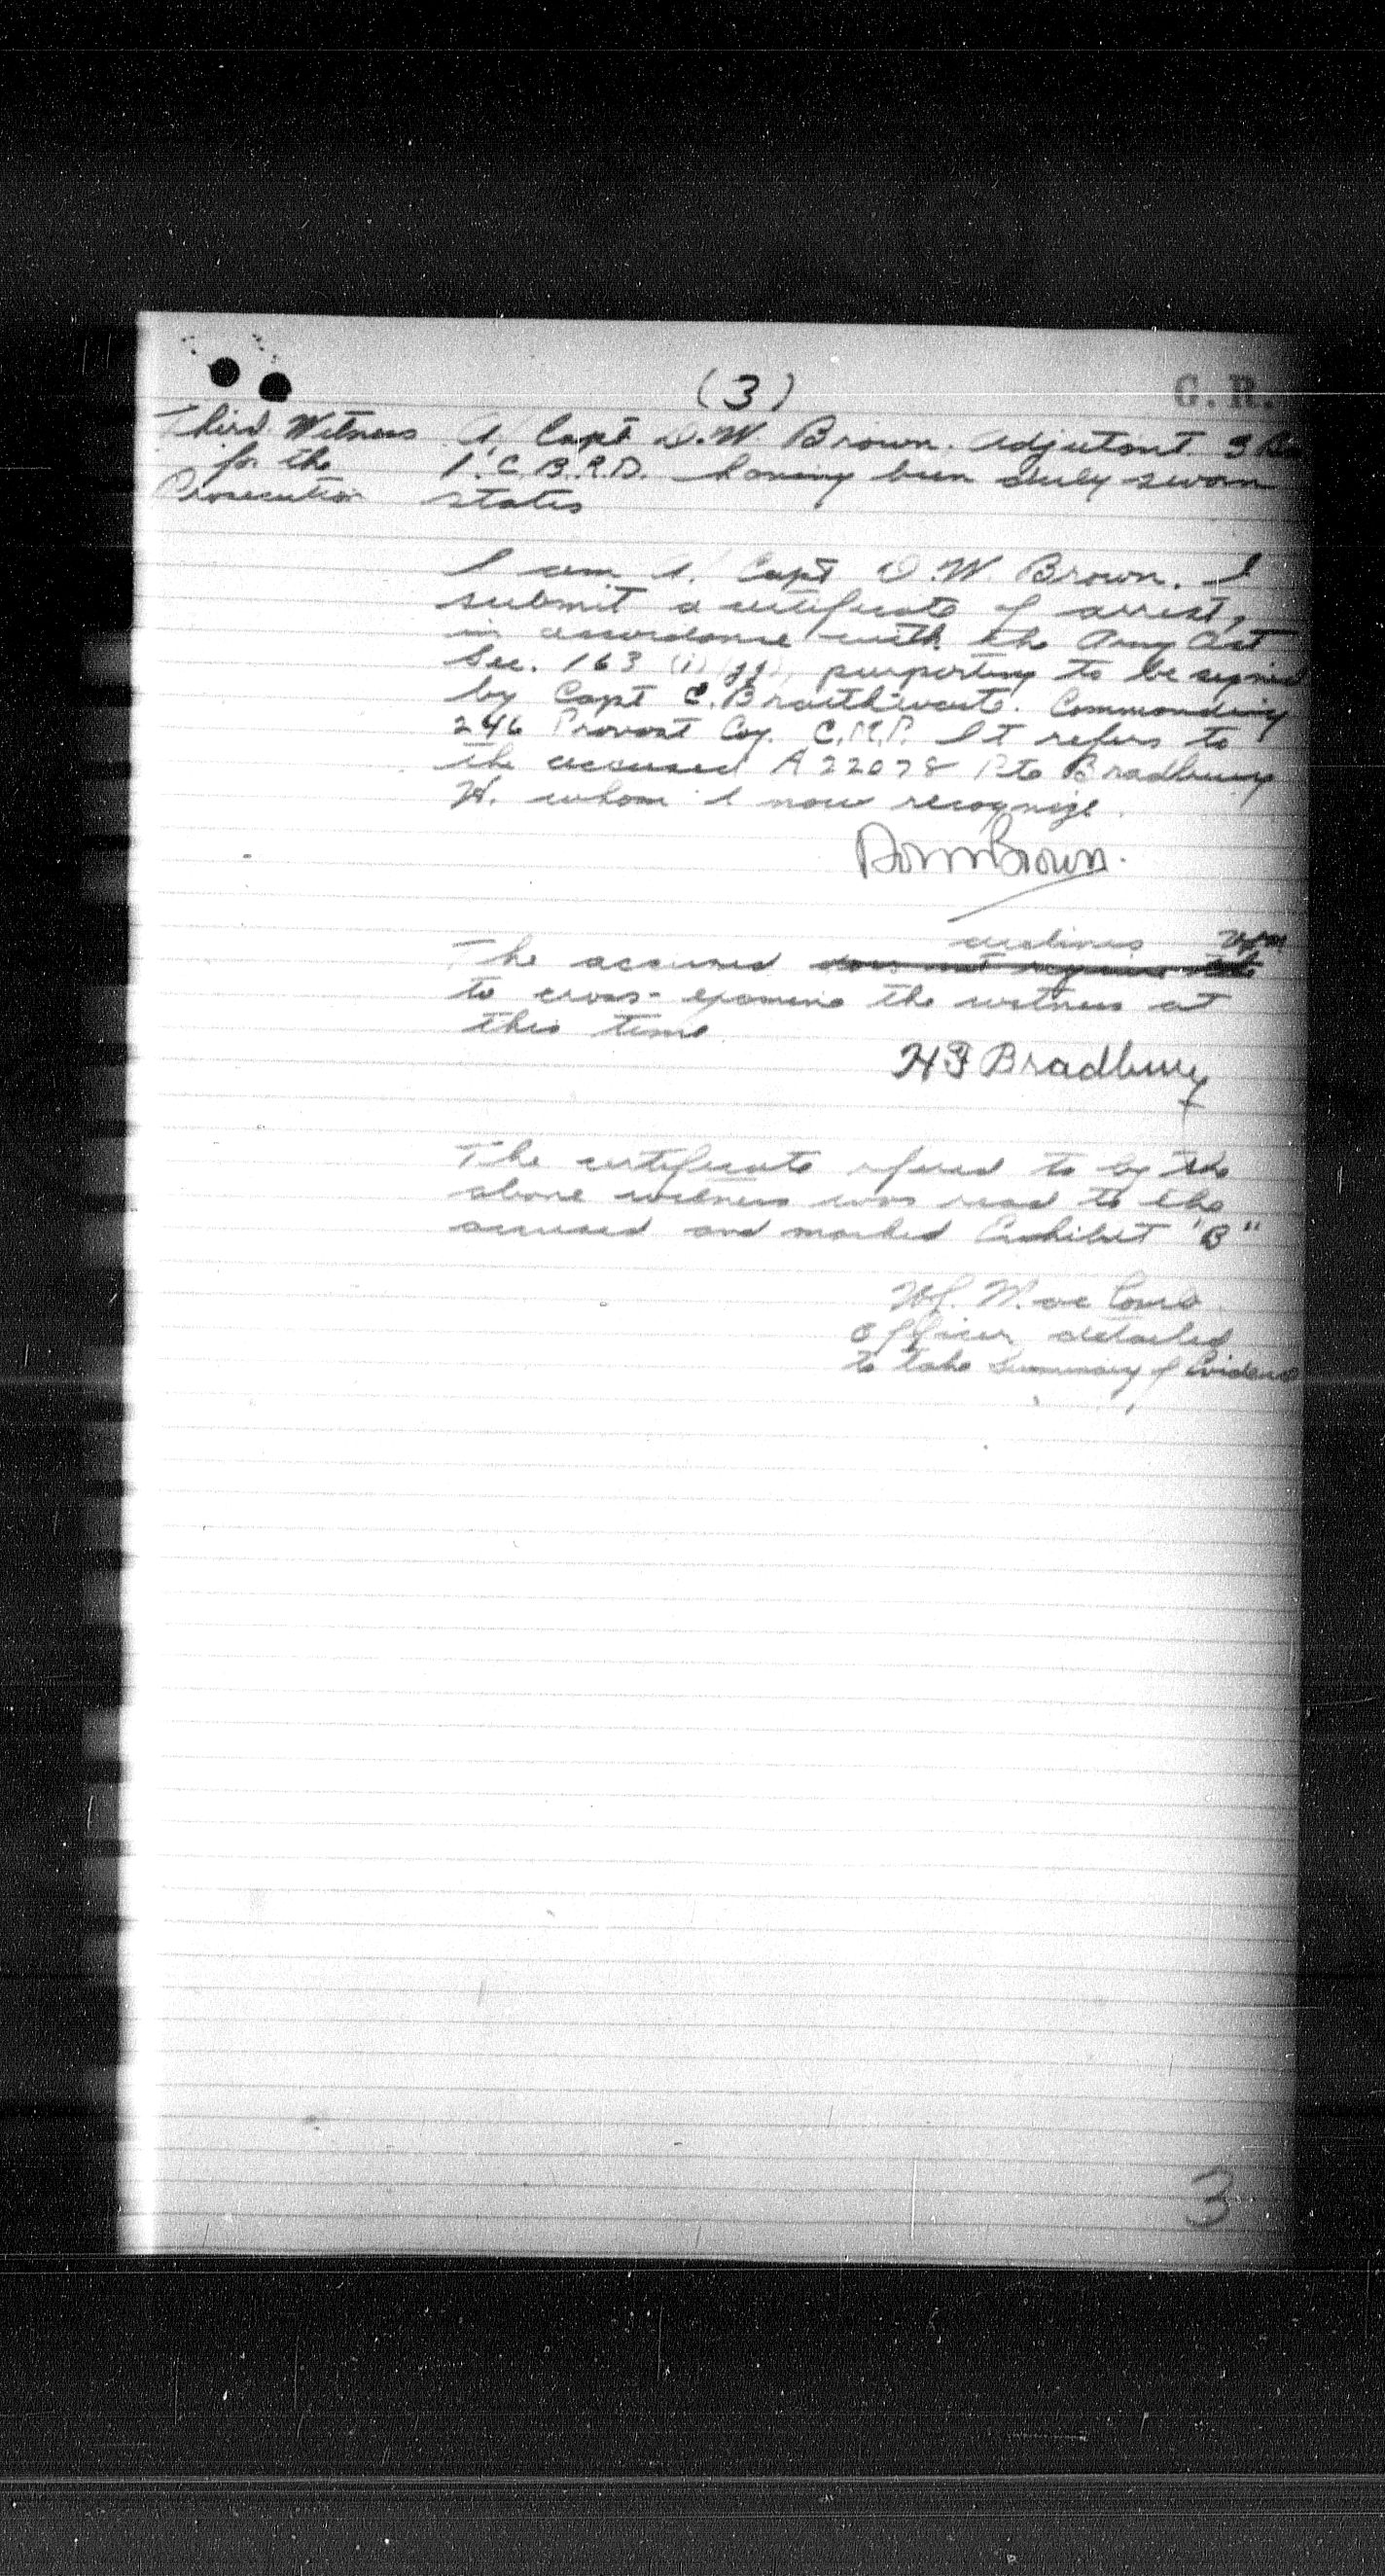 (3)
C.R.
Third Witness A/ Capt D.W. Brown. Adjutant 3 Bn
for the 1 C.B.R.D. having been duly sworn
Prosecution states
I am A/ Capt D.W. Brown. I
submit a certificate of arrest,
in accordance with the Army Act
Sec. 163 (i) (jj), purporting to be signed
by Capt C. Braithwaite. Commanding
246 Provost Coy. C.M.P. It refers to
the accused A 22078 Pte Bradbury
W. whom I now recognize.
Brown.
declines
The accused does not require to
to cross-examine the witness at
this time
Bradbury
The certificate refered to by the
above witness was read to the
accused and marked Exhibit "B"
Officer detailed
to take Summary of Evidence
3